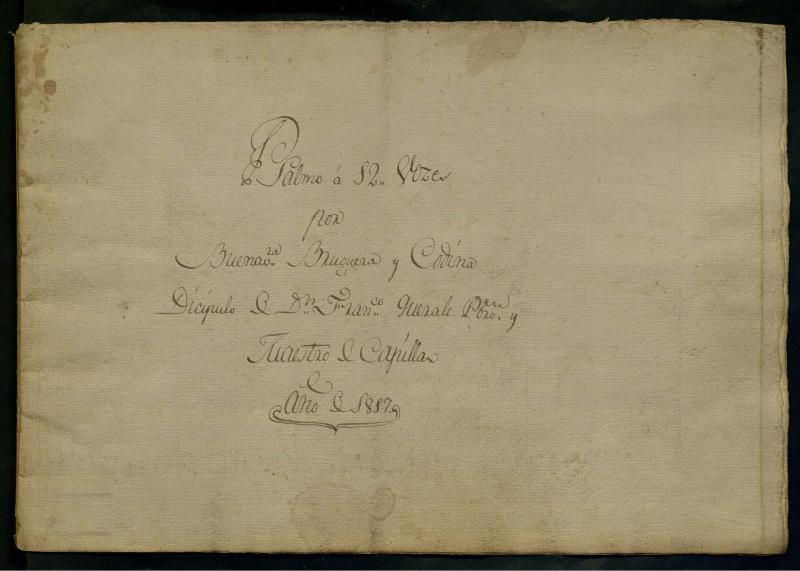 Psalmo á 12,, Vozes
por
Buenav.ra Bruguera y Codína
Dícípulo de D.n Fran.co Queralt Pbro. y
Maestro de Capílla
Año de 1817.